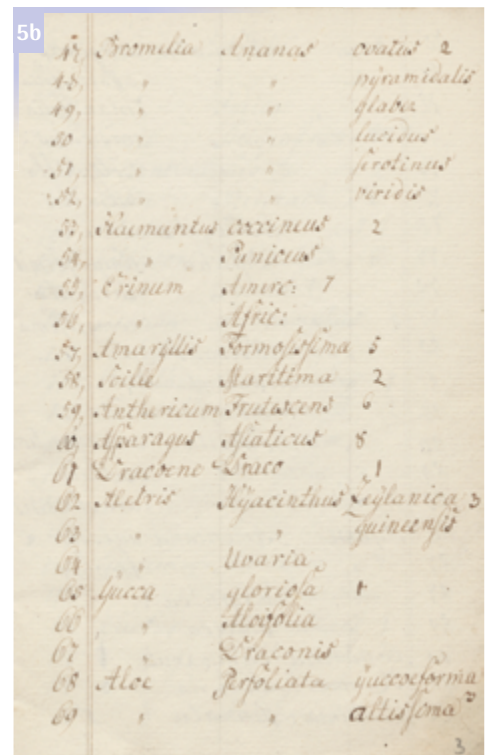 5b
47, Bromelia Ananas ovatus 2
48, " " pÿramidalis
49, " " glaber
50 " " lucidus
51, " " serotinus
52, " " viridis
53, Haemantus coccineus 2
54, " Puniceus
55, Crinum Americ: 7
56, " Afric:
57, Amarÿllis Formosissima 5
58, Scille Maritima 2
59, Anthericum Frutescens 6
60, Asparagus Asiaticus 8
61 Dracoene Draco 1
62 Aletris Hÿacinthus Zeÿlanica 3
63 " " guineensis
64 " Uvaria
65 Yucca gloriosa 1
66 " Aloifolia
67 " Draconis
68 Aloe Perfoliata ÿuccoeforma
69 " " altissima 2
3